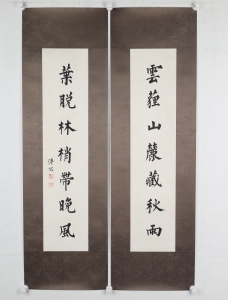 雲薶山麓藏秋雨
葉脫林梢帶晚風